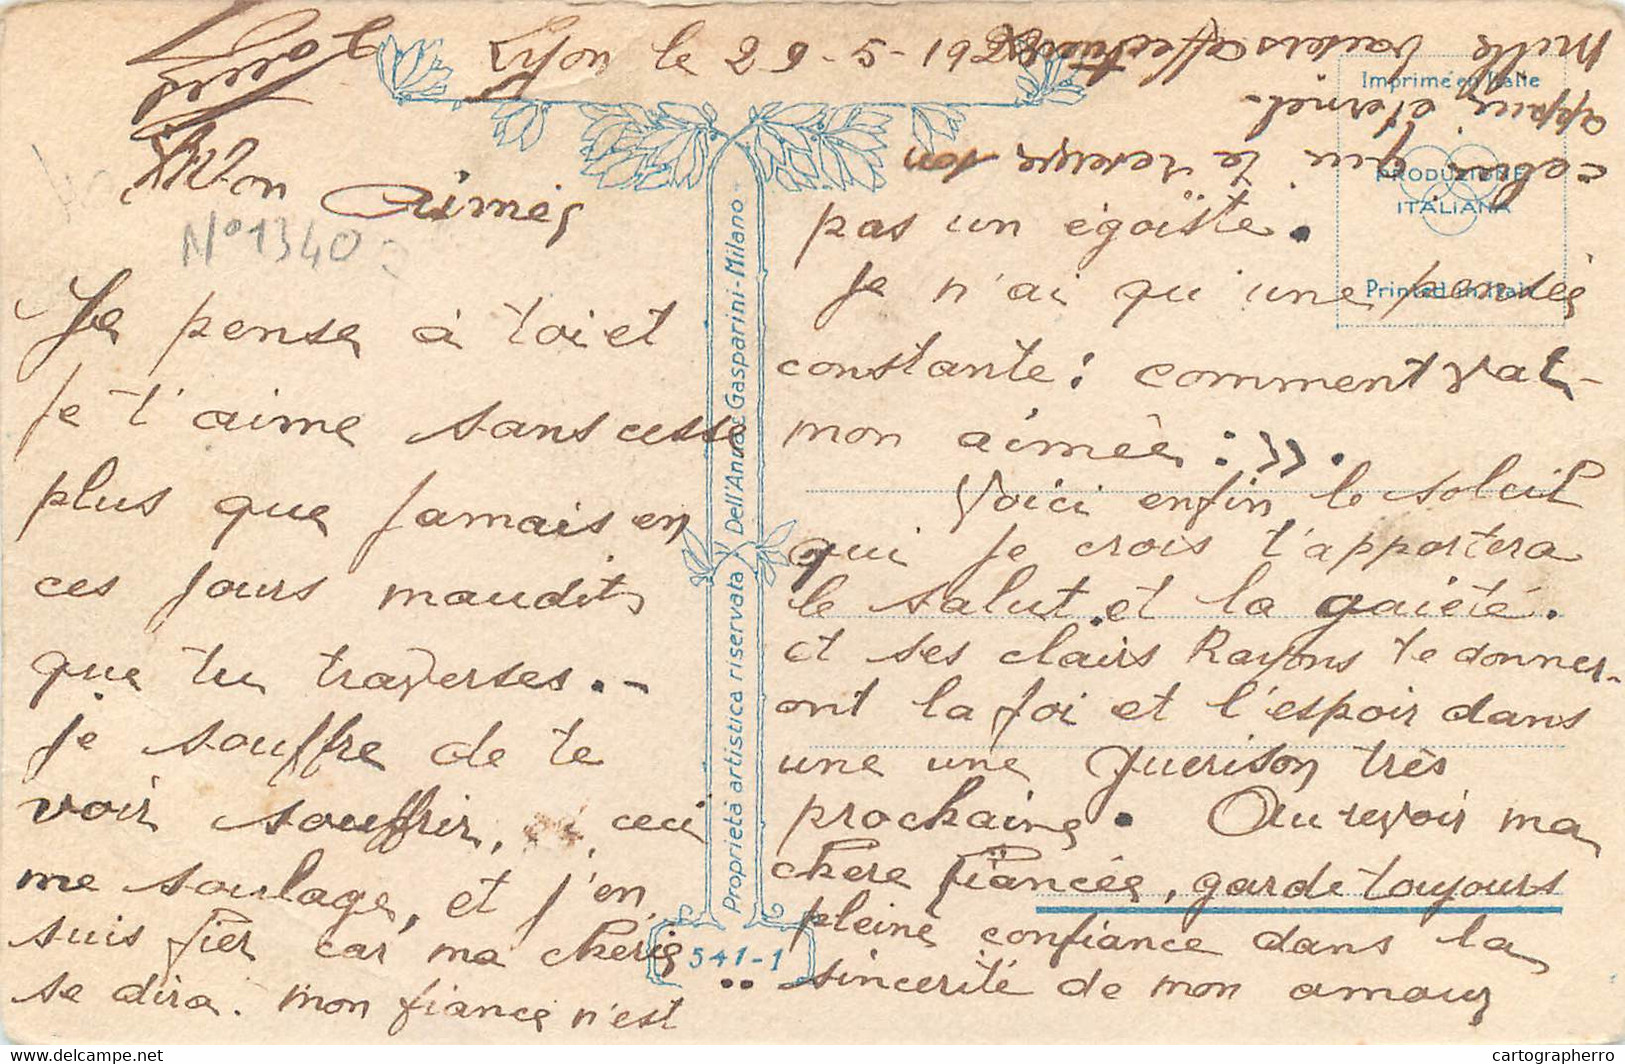 Lyon le 29-5-192
Mon Aimée
N° 1340
Je pense à toi et
je t'aime sans cesse
plus que jamais en
ces jours maudits
que tu traverses.-
je souffre de te
voir souffrir, ceci
me soulage, et j'en
suis fier car ma chérie
se dira. mon fiancé n'est
pas un égoïste.
Je n'ai qu'une pensée
constante: comment vat-
mon aimée: >>.
Voici enfin le soleil
qui je crois t'apportera
le salut et la gaiété.
et ses clairs Rayons te donner-
ont la foi et l'espoir dans
une une guerison très
prochaine. Au revoir ma
chère fiancée, garde toujours
pleine confiance dans la
sincerité de mon amour
celui qui te reserve son
appui éternel-
Mille baisers affectueux
Louis
Proprietà artistica riservata Dell'Anna & Gasparini-Milano
541-1
Imprimé en Italie
PRODUZIONE
ITALIANA
Printed in Italy
delcampe.net
cartographerro